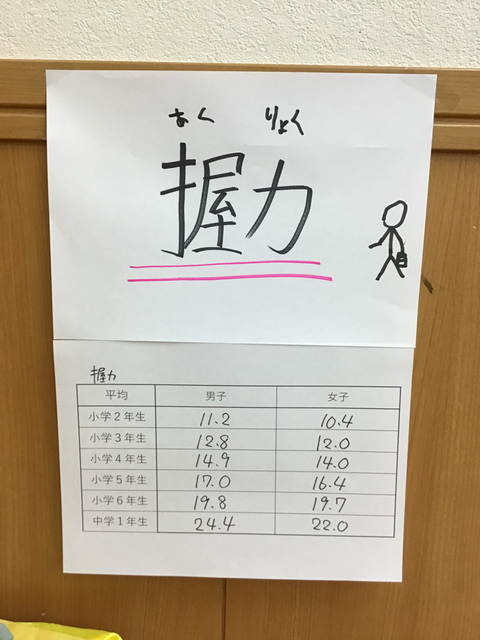 あく りょく
握力
握力
平均 男子 女子
小学2年生 11.2 10.4
小学3年生 12.8 12.0
小学4年生 14.9 14.0
小学5年生 17.0 16.4
小学6年生 19.8 19.7
中学1年生 24.4 22.0